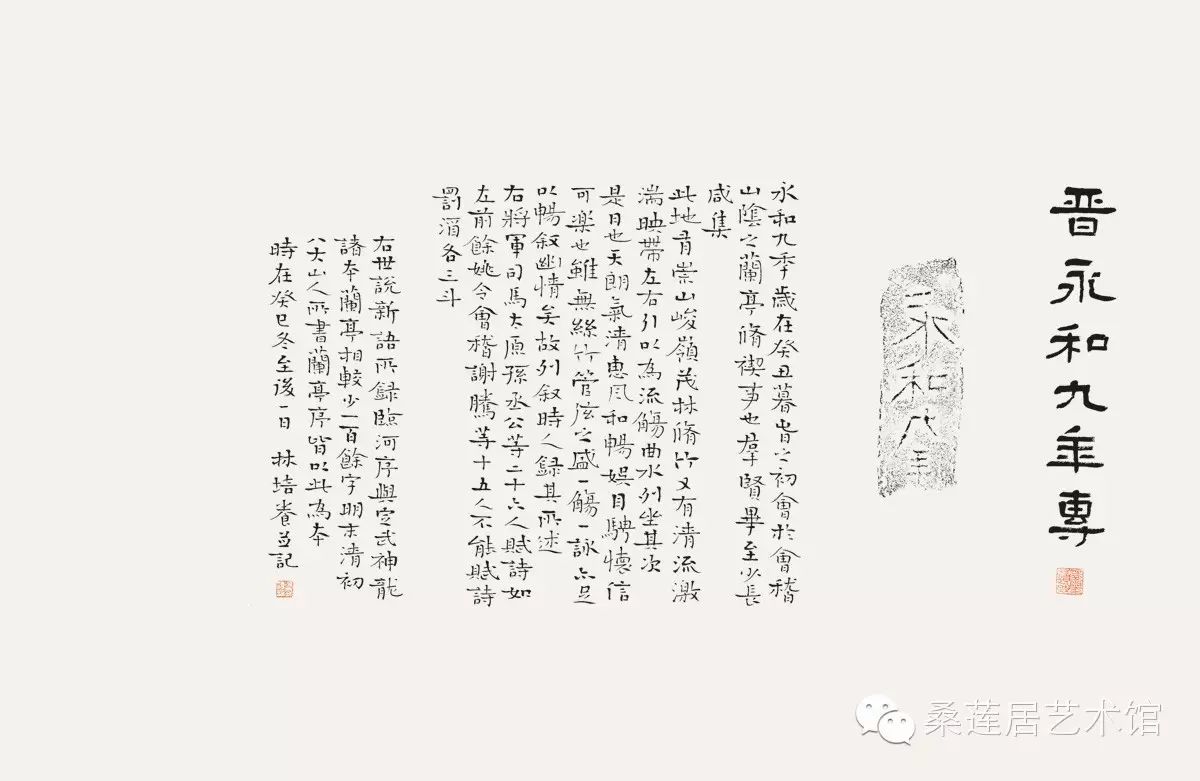 晋永和九年專
永和九年
永和九季歲在癸丑暮皆之初會於會稽
山陰之蘭亭脩禊事也羣賢畢至少長
咸集
此地有崇山峻嶺茂林脩竹又有清流激
湍映帶左右引以為流觴曲水列坐其次
是日也天朗氣清惠风和暢娱目騁懷信
可樂也雖無絲竹管弦之盛一觴一詠亦足
以暢叙幽情矣故列叙時人録其所述
右將軍司馬太原孫丞公等二十六人賦詩如
左前餘姚令會稽謝騰等十五人不能賦詩
罰酒各三斗
右世說新語所録臨河序與定武神龍
諸本蘭亭相較少一百餘字明末清初
八大山人所書蘭亭序皆以此為本
時在癸巳冬至後一日 林培養並記
桑莲居艺术馆